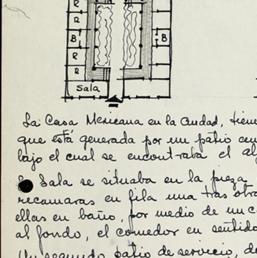 R
R
R
B
B
R
R
Sala
La Casa Mexicana en la Ciudad, tiene
que está generada por un patio cen
bajo el cual se encontraba el al
La Sala se situaba en la pieza
recamaras en fila una tras otra
ellas en baño, por medio de un c
al fondo, el comedor en sentido
Un segundo patio de servicio, de